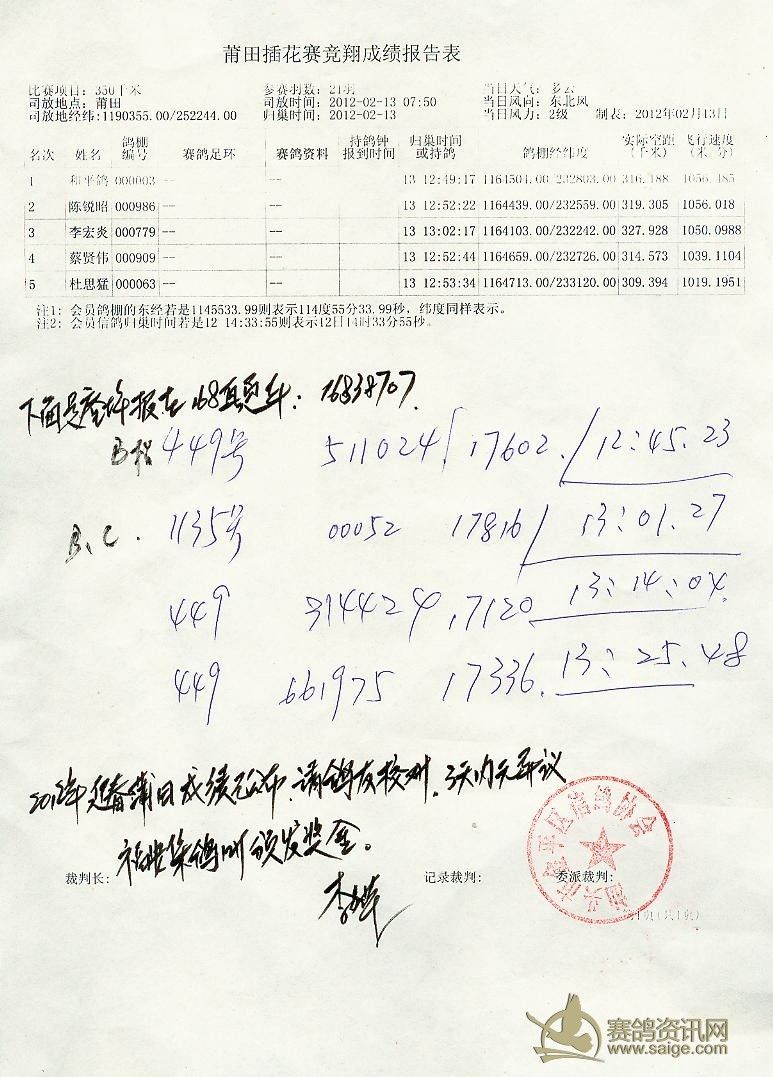 莆田插花赛竞翔成绩报告表
比赛项目: 350千米 参赛羽数: 21羽 当日天气: 多云
司放地点: 莆田 司放时间: 2012-02-13 07:50 当日风向: 东北风
司放地经纬:1190355.00/252244.00 归巢时间: 2012-02-13 当日风力: 2级 制表: 2012年02月13日
名次 姓名 鸽棚编号 赛鸽足环 赛鸽资料 持鸽钟报到时间 归巢时间或持鸽 鸽棚经纬度 实际空距(千米) 飞行速度(米/分)
1 和平鸽 000003 -- -- 13 12:49:17 1164504.00/232803.00 316.188 1056.485
2 陈锐昭 000986 -- -- 13 12:52:22 1164439.00/232559.00 319.305 1056.018
3 李宏炎 000779 -- -- 13 13:02:17 1164103.00/232242.00 327.928 1050.0988
4 蔡贤伟 000909 -- -- 13 12:52:44 1164659.00/232726.00 314.573 1039.1104
5 杜思猛 000063 -- -- 13 12:53:34 1164713.00/233120.00 309.394 1019.1951
注1: 会员鸽棚的东经若是1145533.99则表示114度55分33.99秒, 纬度同样表示。
注2: 会员信鸽归巢时间若是12 14:33:55则表示12日14时33分55秒。
下面是 报 168 : 16838707.
449号 511024 17602. 12:45.23
B.C. 1135号 00052 17816 13:01.27
449 314424 17120 13:14:04.
449 661975 17336. 13:25.48
2012年迎春莆田成绩已公布.请鸽友校对.3天内无异议
颁发奖金。
裁判长: 记录裁判: 委派裁判:
区信鸽协会
第1页(共1页)
赛鸽资讯网
www.saige.com